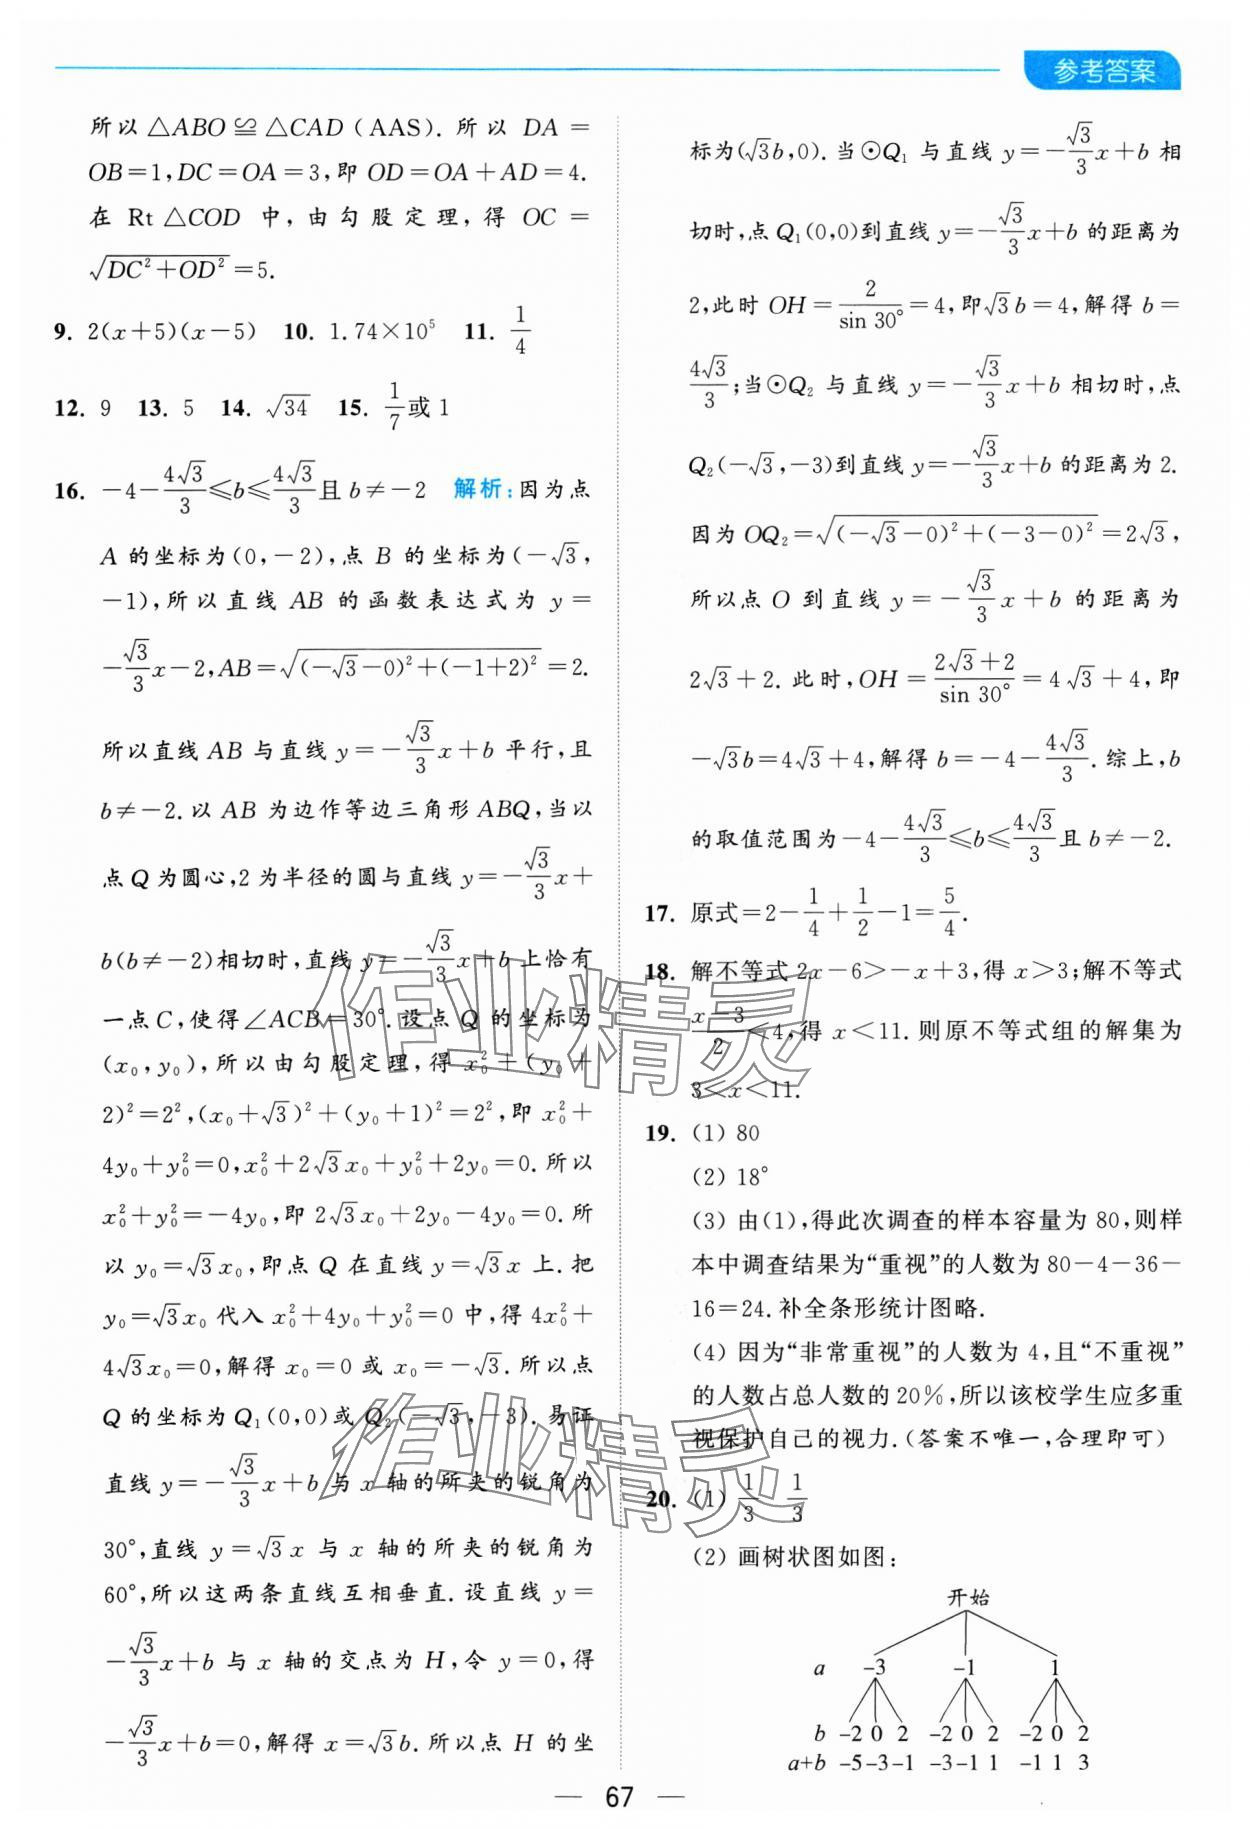 参考答案
所以△ABO≌△CAD(AAS).所以 DA=
OB=1,DC=OA=3,即 OD=OA+AD=4.
在 Rt△COD 中,由勾股定理,得 OC=
√(DC²+OD²)=5.
9. 2(x+5)(x-5)  10. 1.74×10⁵  11. 1/4
12. 9  13. 5  14. √34  15. 1/7或1
16. -4-4√3/3≤b≤4√3/3且 b≠-2  解析:因为点
A 的坐标为(0,-2),点 B 的坐标为(-√3,
-1),所以直线 AB 的函数表达式为 y=
-√3/3x-2,AB=√((-√3-0)²+(-1+2)²)=2.
所以直线 AB 与直线 y=-√3/3x+b 平行,且
b≠-2.以 AB 为边作等边三角形 ABQ,当以
点 Q 为圆心,2 为半径的圆与直线 y=-√3/3x+
b(b≠-2)相切时,直线 y=-√3/3x+b 上恰有
一点 C,使得∠ACB=30°.设点 Q 的坐标为
(x₀,y₀),所以由勾股定理,得 x₀²+(y₀+
2)²=2²,(x₀+√3)²+(y₀+1)²=2²,即 x₀²+
4y₀+y₀²=0,x₀²+2√3x₀+y₀²+2y₀=0.所以
x₀²+y₀²=-4y₀,即 2√3x₀+2y₀-4y₀=0.所
以 y₀=√3x₀,即点 Q 在直线 y=√3x 上.把
y₀=√3x₀ 代入 x₀²+4y₀+y₀²=0 中,得 4x₀²+
4√3x₀=0,解得 x₀=0 或 x₀=-√3.所以点
Q 的坐标为 Q₁(0,0)或 Q₂(-√3,-3).易证
直线 y=-√3/3x+b 与 x 轴的所夹的锐角为
30°,直线 y=√3x 与 x 轴的所夹的锐角为
60°,所以这两条直线互相垂直.设直线 y=
-√3/3x+b 与 x 轴的交点为 H,令 y=0,得
-√3/3x+b=0,解得 x=√3b.所以点 H 的坐
标为(√3b,0).当⊙Q₁ 与直线 y=-√3/3x+b 相
切时,点 Q₁(0,0)到直线 y=-√3/3x+b 的距离为
2,此时 OH=2/sin 30°=4,即√3b=4,解得 b=
4√3/3;当⊙Q₂ 与直线 y=-√3/3x+b 相切时,点
Q₂(-√3,-3)到直线 y=-√3/3x+b 的距离为 2.
因为 OQ₂=√((-√3-0)²+(-3-0)²)=2√3,
所以点 O 到直线 y=-√3/3x+b 的距离为
2√3+2.此时,OH=(2√3+2)/sin 30°=4√3+4,即
-√3b=4√3+4,解得 b=-4-4√3/3.综上,b
的取值范围为-4-4√3/3≤b≤4√3/3且 b≠-2.
17. 原式=2-1/4+1/2-1=5/4.
18. 解不等式 2x-6>-x+3,得 x>3;解不等式
(x-3)/2<4,得 x<11.则原不等式组的解集为
3<x<11.
19. (1) 80
(2) 18°
(3) 由(1),得此次调查的样本容量为 80,则样
本中调查结果为“重视”的人数为 80-4-36-
16=24.补全条形统计图略.
(4) 因为“非常重视”的人数为 4,且“不重视”
的人数占总人数的 20%,所以该校学生应多重
视保护自己的视力.(答案不唯一,合理即可)
20. (1) 1/3  1/3
(2) 画树状图如图:
开始
a  -3  -1  1
b  -2 0 2  -2 0 2  -2 0 2
a+b  -5 -3 -1  -3 -1 1  -1 1 3
67
作业精灵
作业精灵